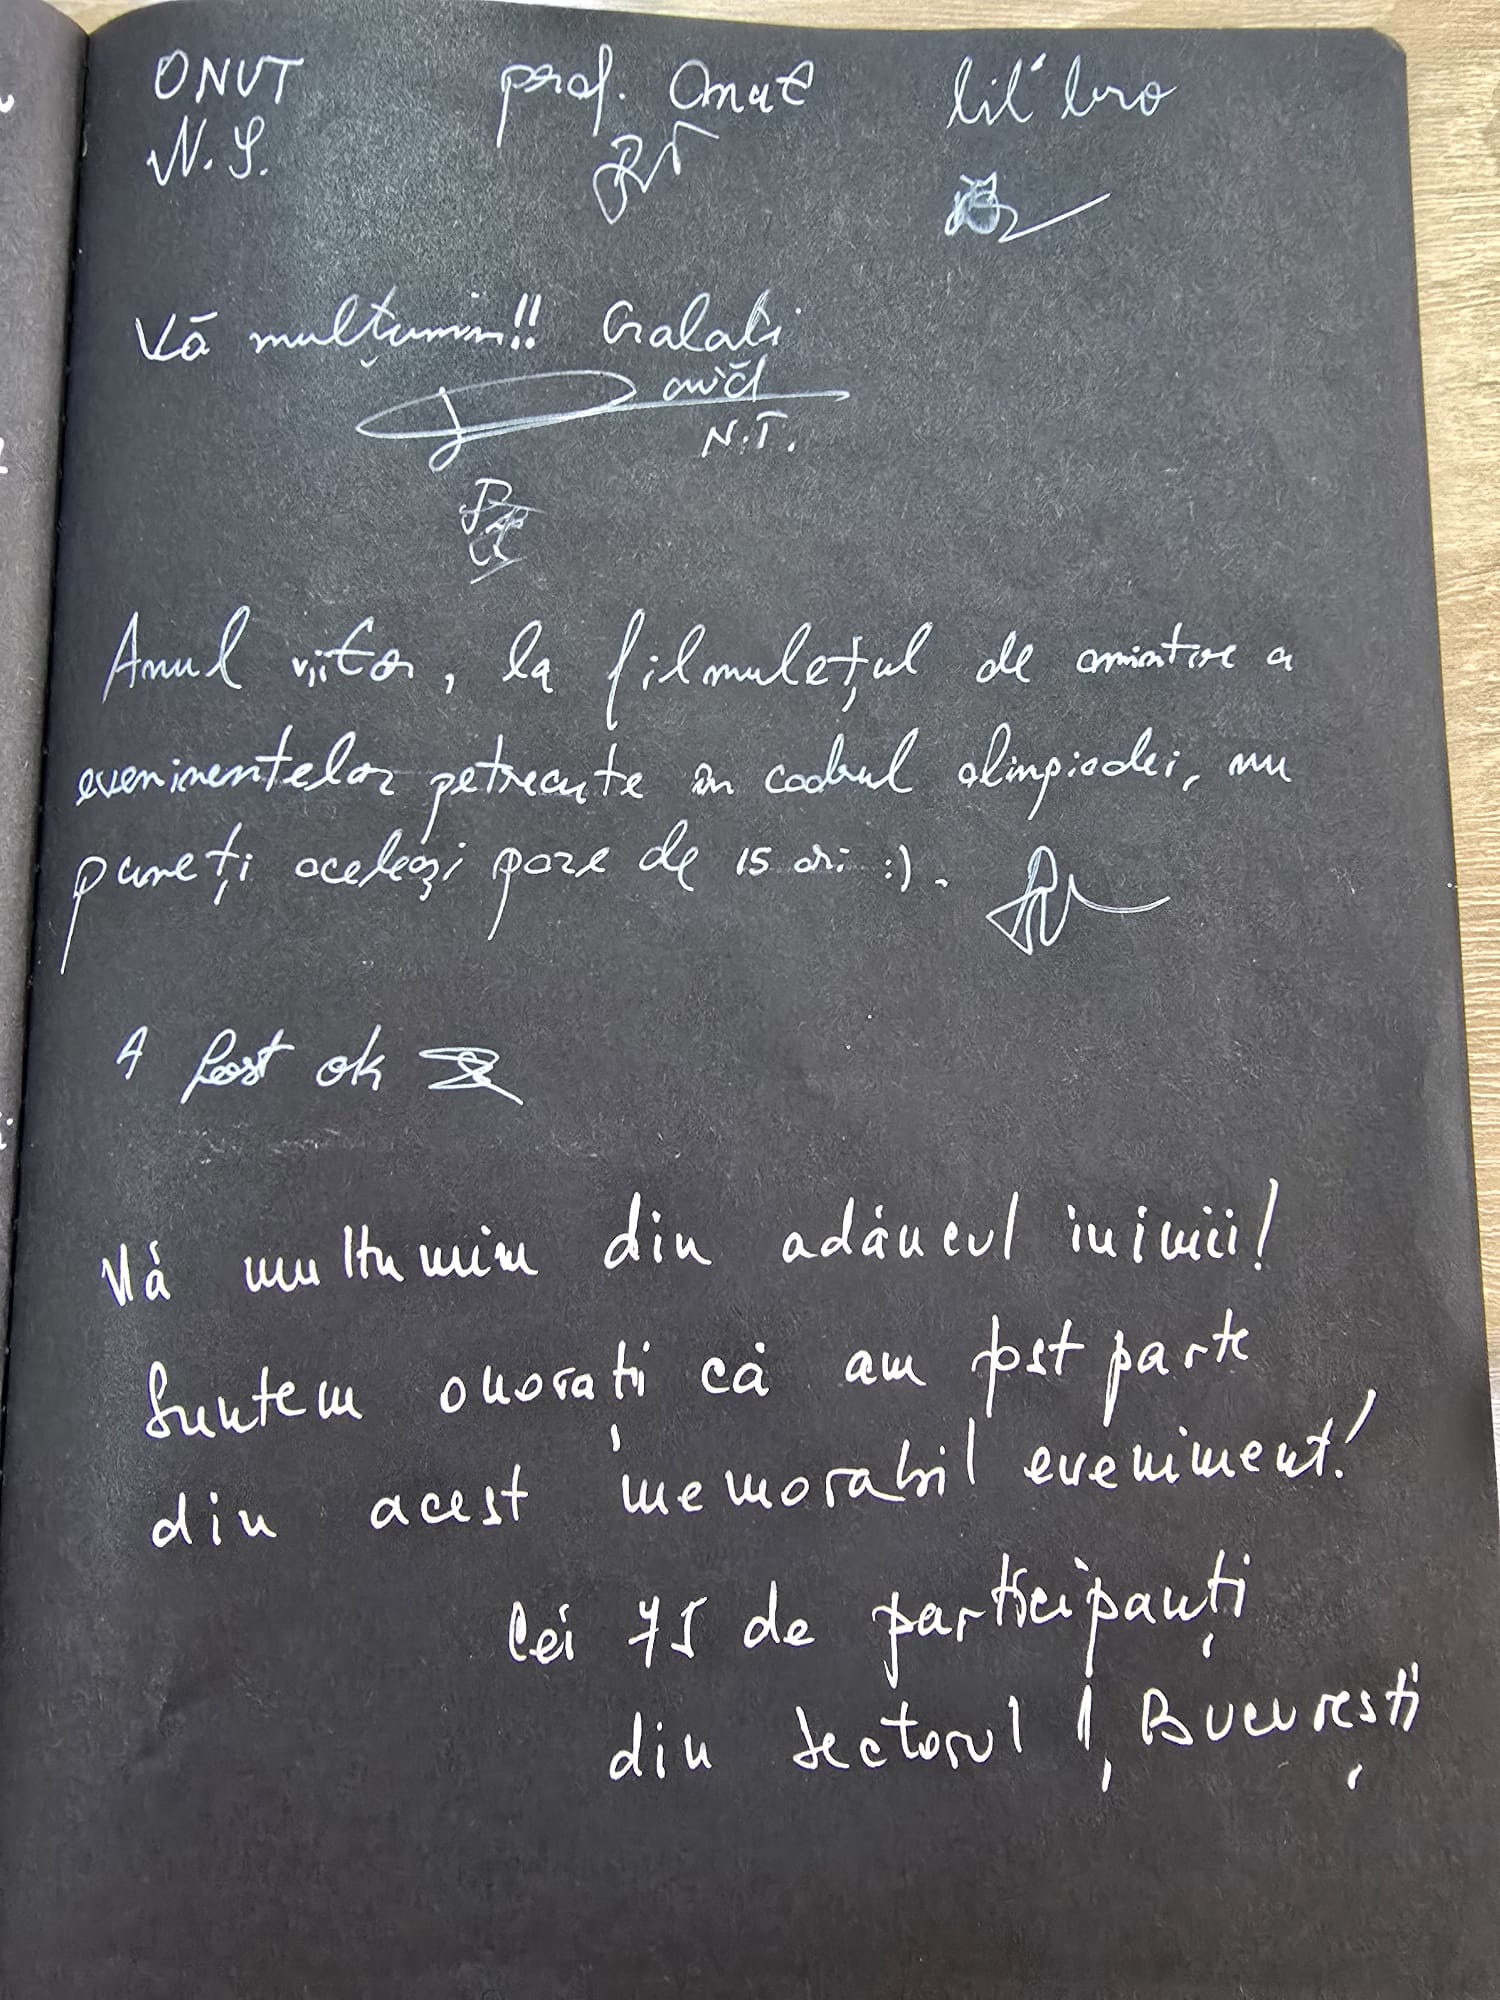 ONUT prof. Onut lil' bro
N.S.
Vă mulțumim!! Galati
N.T.
Anul viitor, la filmulețul de amintire a
evenimentelor petrecute în cadrul olimpiadei, nu
puneți aceleași poze de 15 ori :).
A fost ok
Vă multumim din adâncul inimii!
Suntem onorați că am fost parte
din acest memorabil eveniment!
Cei 75 de participanți
din sectorul 1, București